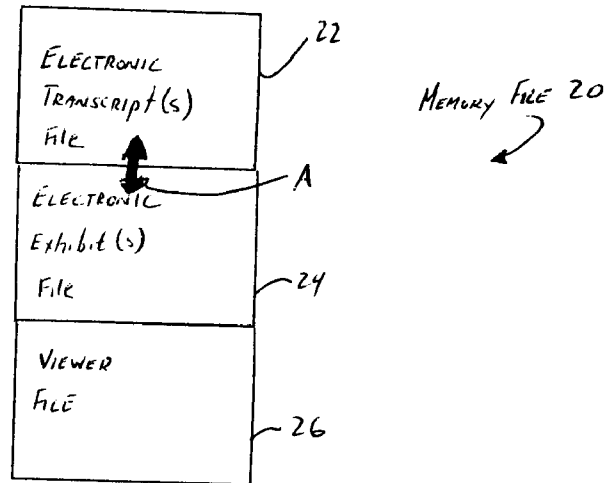 22
ELECTRONIC
TRANSCRIPT(s)
File
MEMORY FILE 20
A
ELECTRONIC
Exhibit(s)
File
24
VIEWER
FILE
26